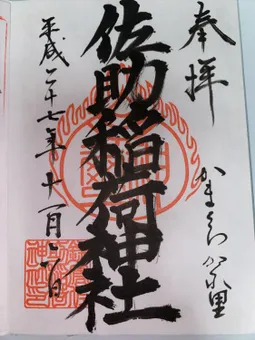 奉拝
かまくら かくれ里
佐助稲荷神社
平成二十七年十一月一日